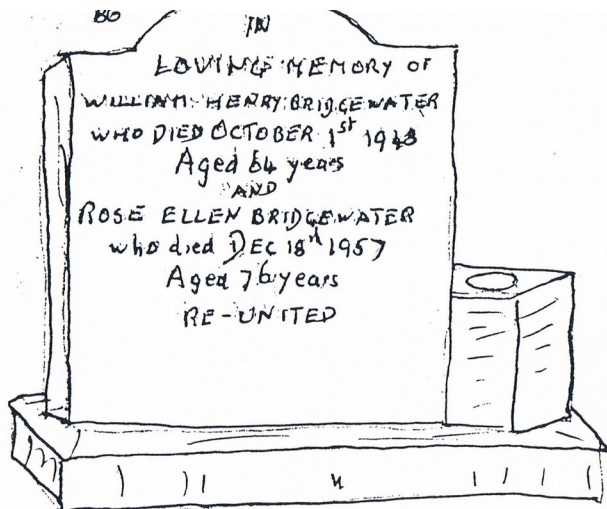 IN
LOVING MEMORY OF
WILLIAM HENRY BRIDGEWATER
WHO DIED OCTOBER 1st 1948
Aged 64 years
AND
ROSE ELLEN BRIDGEWATER
who died DEC 18th 1957
Aged 76 years
RE-UNITED